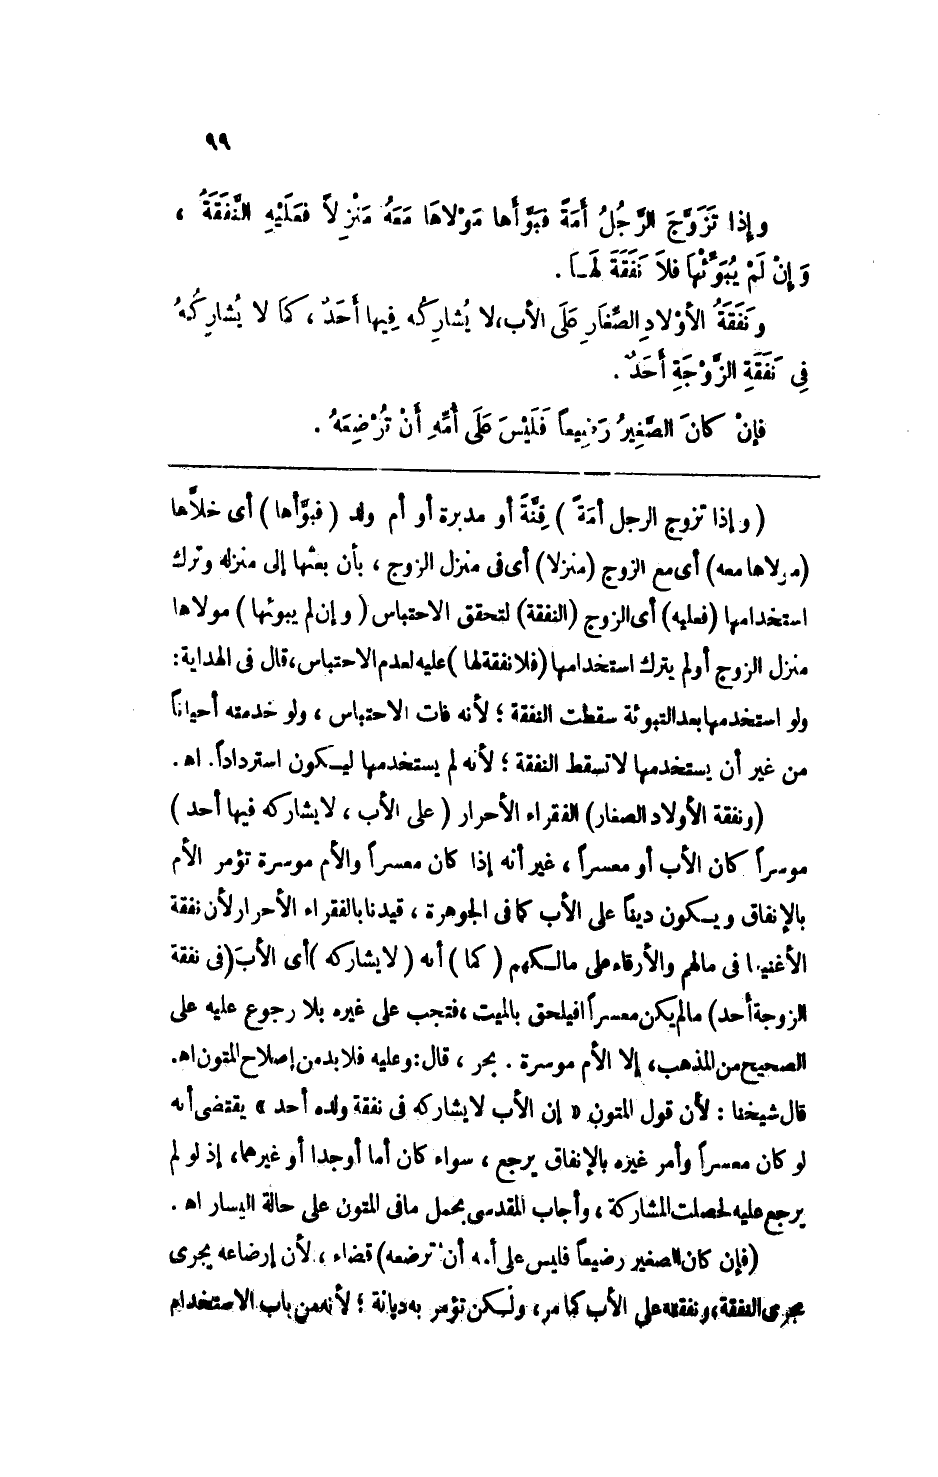 ٩٩
وإذا تَزَوَّجَ الرَّجُلُ أَمَةً فَبَوَّأَها مَوْلاهَا مَعَهُ مَنْزِلاً فَعَلَيْهِ النَّفَقَةُ ،
وَإِنْ لَمْ يُبَوِّئْهَا فلاَ نَفَقَةَ لَهَا .
ونَفَقَةُ الأوْلادِ الصِّغَارِ عَلَى الأب، لا يُشارِكُه فِيها أحَدٌ ، كما لا يُشارِكُهُ
فِي نَفَقَةِ الزَّوْجَةِ أَحَدٌ .
فإنْ كانَ الصَّغِيرُ رَضِيعاً فَلَيْسَ عَلَى أُمِّهِ أَنْ تُرْضِعَهُ .
( وإذا تزوج الرجل أمَةً ) قِنَّةً أو مدبرة أو أم ولد ( فبوَّأها ) أى خلاَّها
(مولاها معه) أى مع الزوج (منزلا) أى فى منزل الزوج ، بأن بعثها إلى منزله وترك
استخدامها (فعليه) أى الزوج (النفقة) لتحقق الاحتباس ( وإن لم يبوئها ) مولاها
منزل الزوج أو لم يترك استخدامها (فلا نفقة لها) عليه لعدم الاحتباس، قال فى الهداية:
ولو استخدمها بعد التبوئة سقطت النفقة ؛ لأنه فات الاحتباس ، ولو خدمته أحياناً
من غير أن يستخدمها لا تسقط النفقة ؛ لأنه لم يستخدمها ليكون استرداداً . اه .
(ونفقة الأولاد الصغار) الفقراء الأحرار ( على الأب ، لا يشاركه فيها أحد )
موسراً كان الأب أو معسراً ، غير أنه إذا كان معسراً والأم موسرة تؤمر الأم
بالإنفاق ويكون ديناً على الأب كما فى الجوهرة ، قيدنا بالفقراء الأحرار لأن نفقة
الأغنيا فى مالهم والأرقاء على مالكهم ( كما ) أنه ( لا يشاركه ) أى الأب (فى نفقة
الزوجة أحد) مالم يكن معسراً فيلحق بالميت ، فتجب على غيره بلا رجوع عليه على
الصحيح من المذهب، إلا الأم موسرة . بحر ، قال: وعليه فلا بد من إصلاح المتون اه.
قال شيخنا : لأن قول المتون « إن الأب لا يشاركه فى نفقة ولده أحد » يقتضى أنه
لو كان معسراً وأمر غيره بالإنفاق يرجع ، سواء كان أما أو جدا أو غيرهما، إذ لو لم
يرجع عليه لحصلت المشاركة ، وأجاب المقدسى بحمل ما فى المتون على حالة اليسار اه .
(فإن كان الصغير رضيعاً فليس على أمه أن ترضعه) قضاء ، لأن إرضاعه يجرى
مجرى النفقة، ونفقته على الأب كما مر ، ولكن تؤمر به ديانة ؛ لأنه من باب الاستخدام